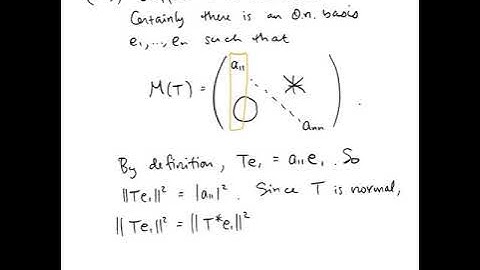 Certainly there is an o.n. basis
e₁,..., eₙ such that
M(T) = ( a₁₁ * O aₙₙ ) .
By definition, Te₁ = a₁₁e₁. So
||Te₁||² = |a₁₁|². Since T is normal,
||Te₁||² = ||T*e₁||²